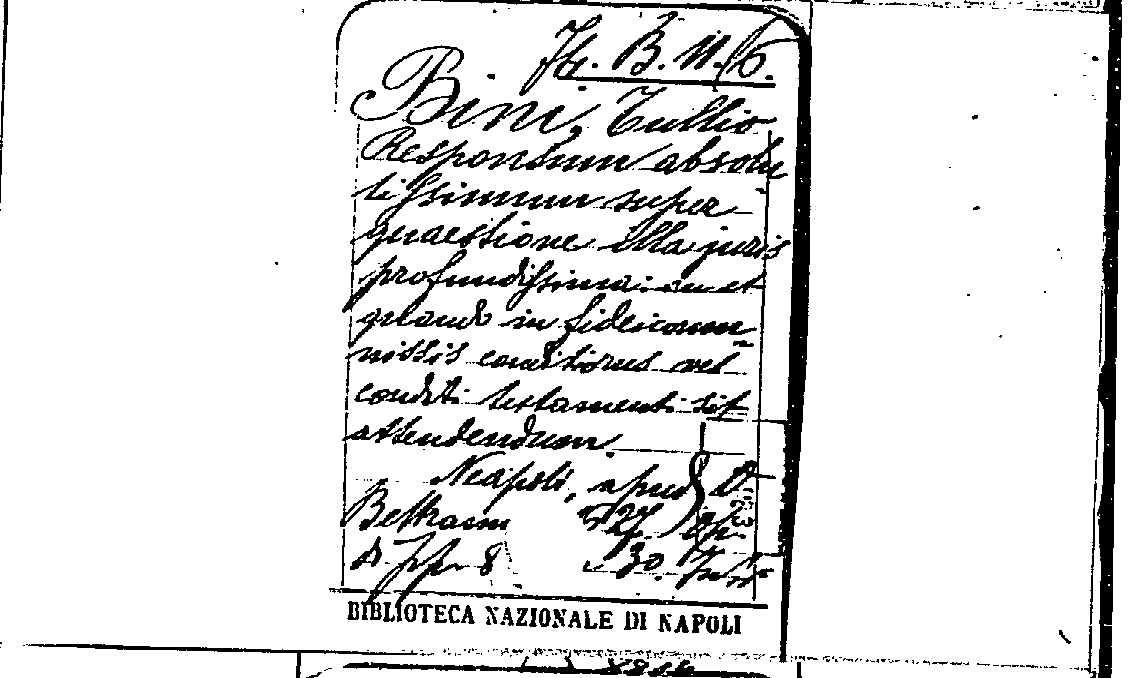 B. 11. (6.
Bini, Tullio
Responsum absolu
tissimum super
quaestione illa juris
profundissima: an et
quando in fideicom
missis conditionis vel
conditi testamenti sit
attendendum.
Neapoli, apud
Beltram
8
30.
BIBLIOTECA NAZIONALE DI NAPOLI